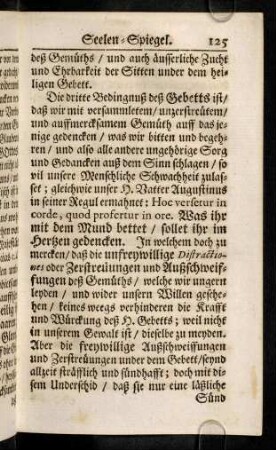 Seelen-Spiegel. 125
deß Gemüths/ und auch äusserliche Zucht
und Ehrbarkeit der Sitten under dem hei-
ligen Gebett.
Die dritte Bedingnuß deß Gebetts ist/
daß wir mit versamnletem/ unzerstreütem/
und auffmercksamem Gemüth auff das je-
nige gedencken/ was wir bitten und begeh-
ren/ und also alle andere ungehörige Sorg
und Gedancken auß dem Sinn schlagen/ so
vil unsere Menschliche Schwachheit zulas-
set; gleichwie unser H. Vatter Augustinus
in seiner Regul ermahnet: Hoc versetur in
corde, quod profertur in ore. Was ihr
mit dem Mund bettet/ sollet ihr im
Hertzen gedencken. In welchem doch zu
mercken/ daß die unfreywillige Distractio-
nes oder Zerstreüungen und Außschweif-
fungen deß Gemüths/ welche wir ungern
leyden/ und wider unsern Willen gesche-
hen/ keines weegs verhinderen die Krafft
und Würckung deß H. Gebetts; weil nicht
in unserem Gewalt ist/ dieselbe zu meyden.
Aber die freywillige Außschweiffungen
und Zerstreüungen under dem Gebett/ seynd
allzeit sträfflich und sündhafft; doch mit di-
sem Underschid/ daß sie nur eine läßliche
Sünd